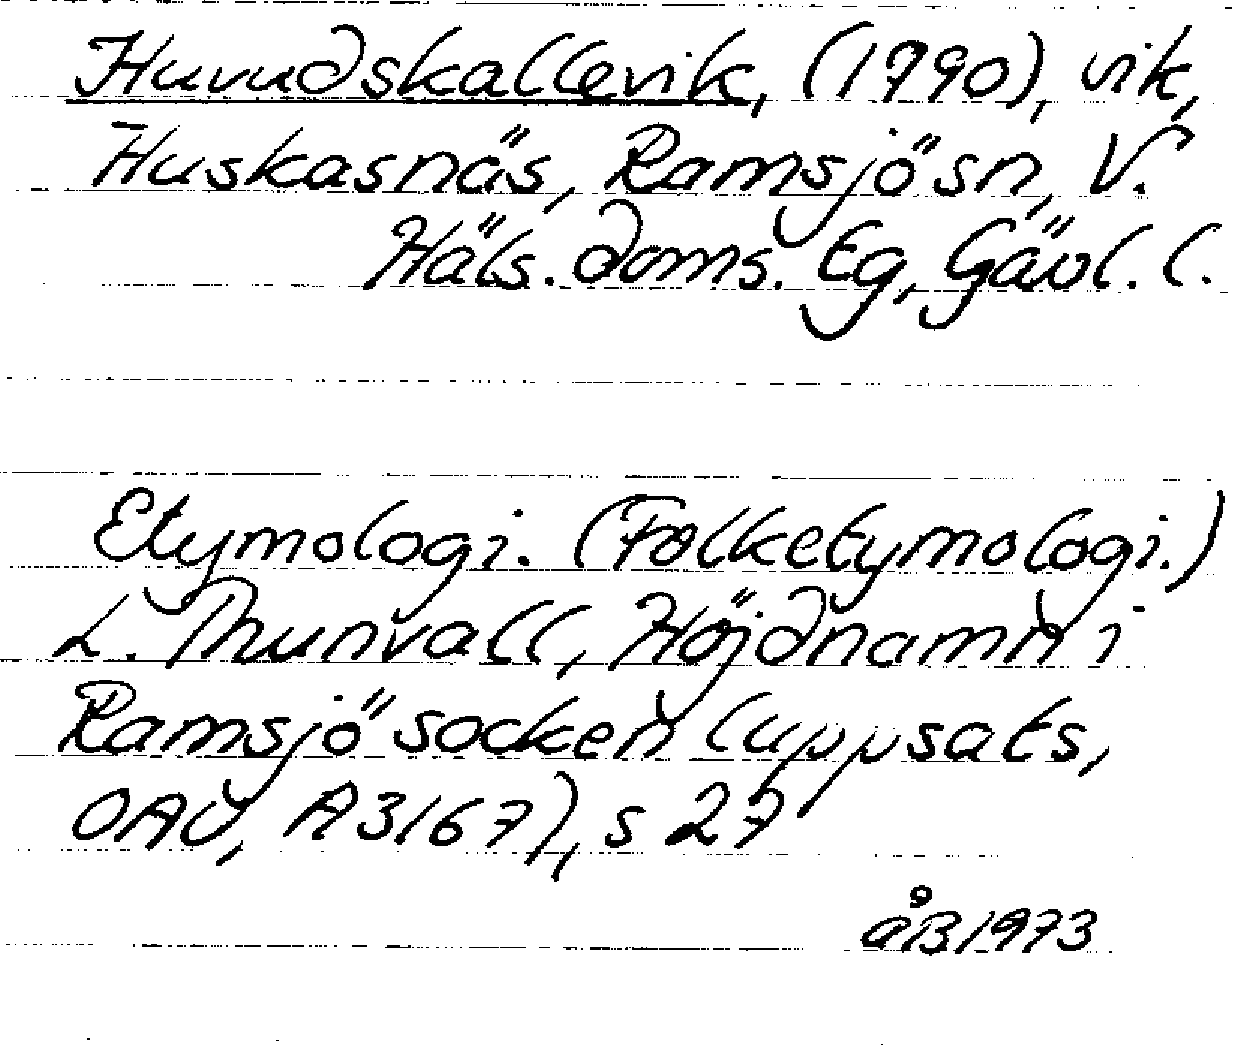 Huvudskallevik, (1790), vik,
Huskasnäs, Ramsjö sn, V.
Häls. doms. Eg, Gävl. l.
Etymologi. (Folketymologi.)
L. Thunvall, Höjdnamn i
Ramsjö socken (uppsats,
OAU, A3167), s 27
åB 1973